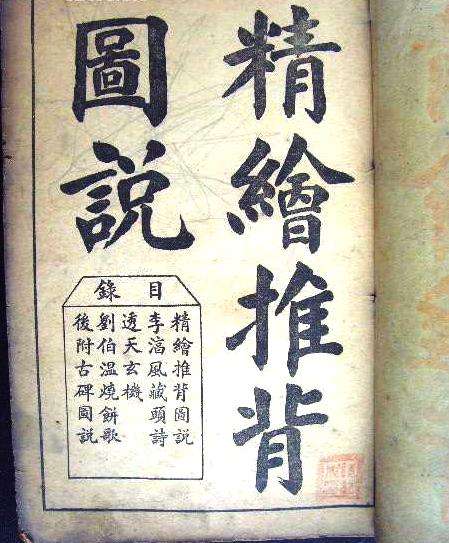 精繪推背
圖說
目錄
精繪推背圖說
李淳風藏頭詩
透天玄機
劉伯溫燒餅歌
後附古碑圖說